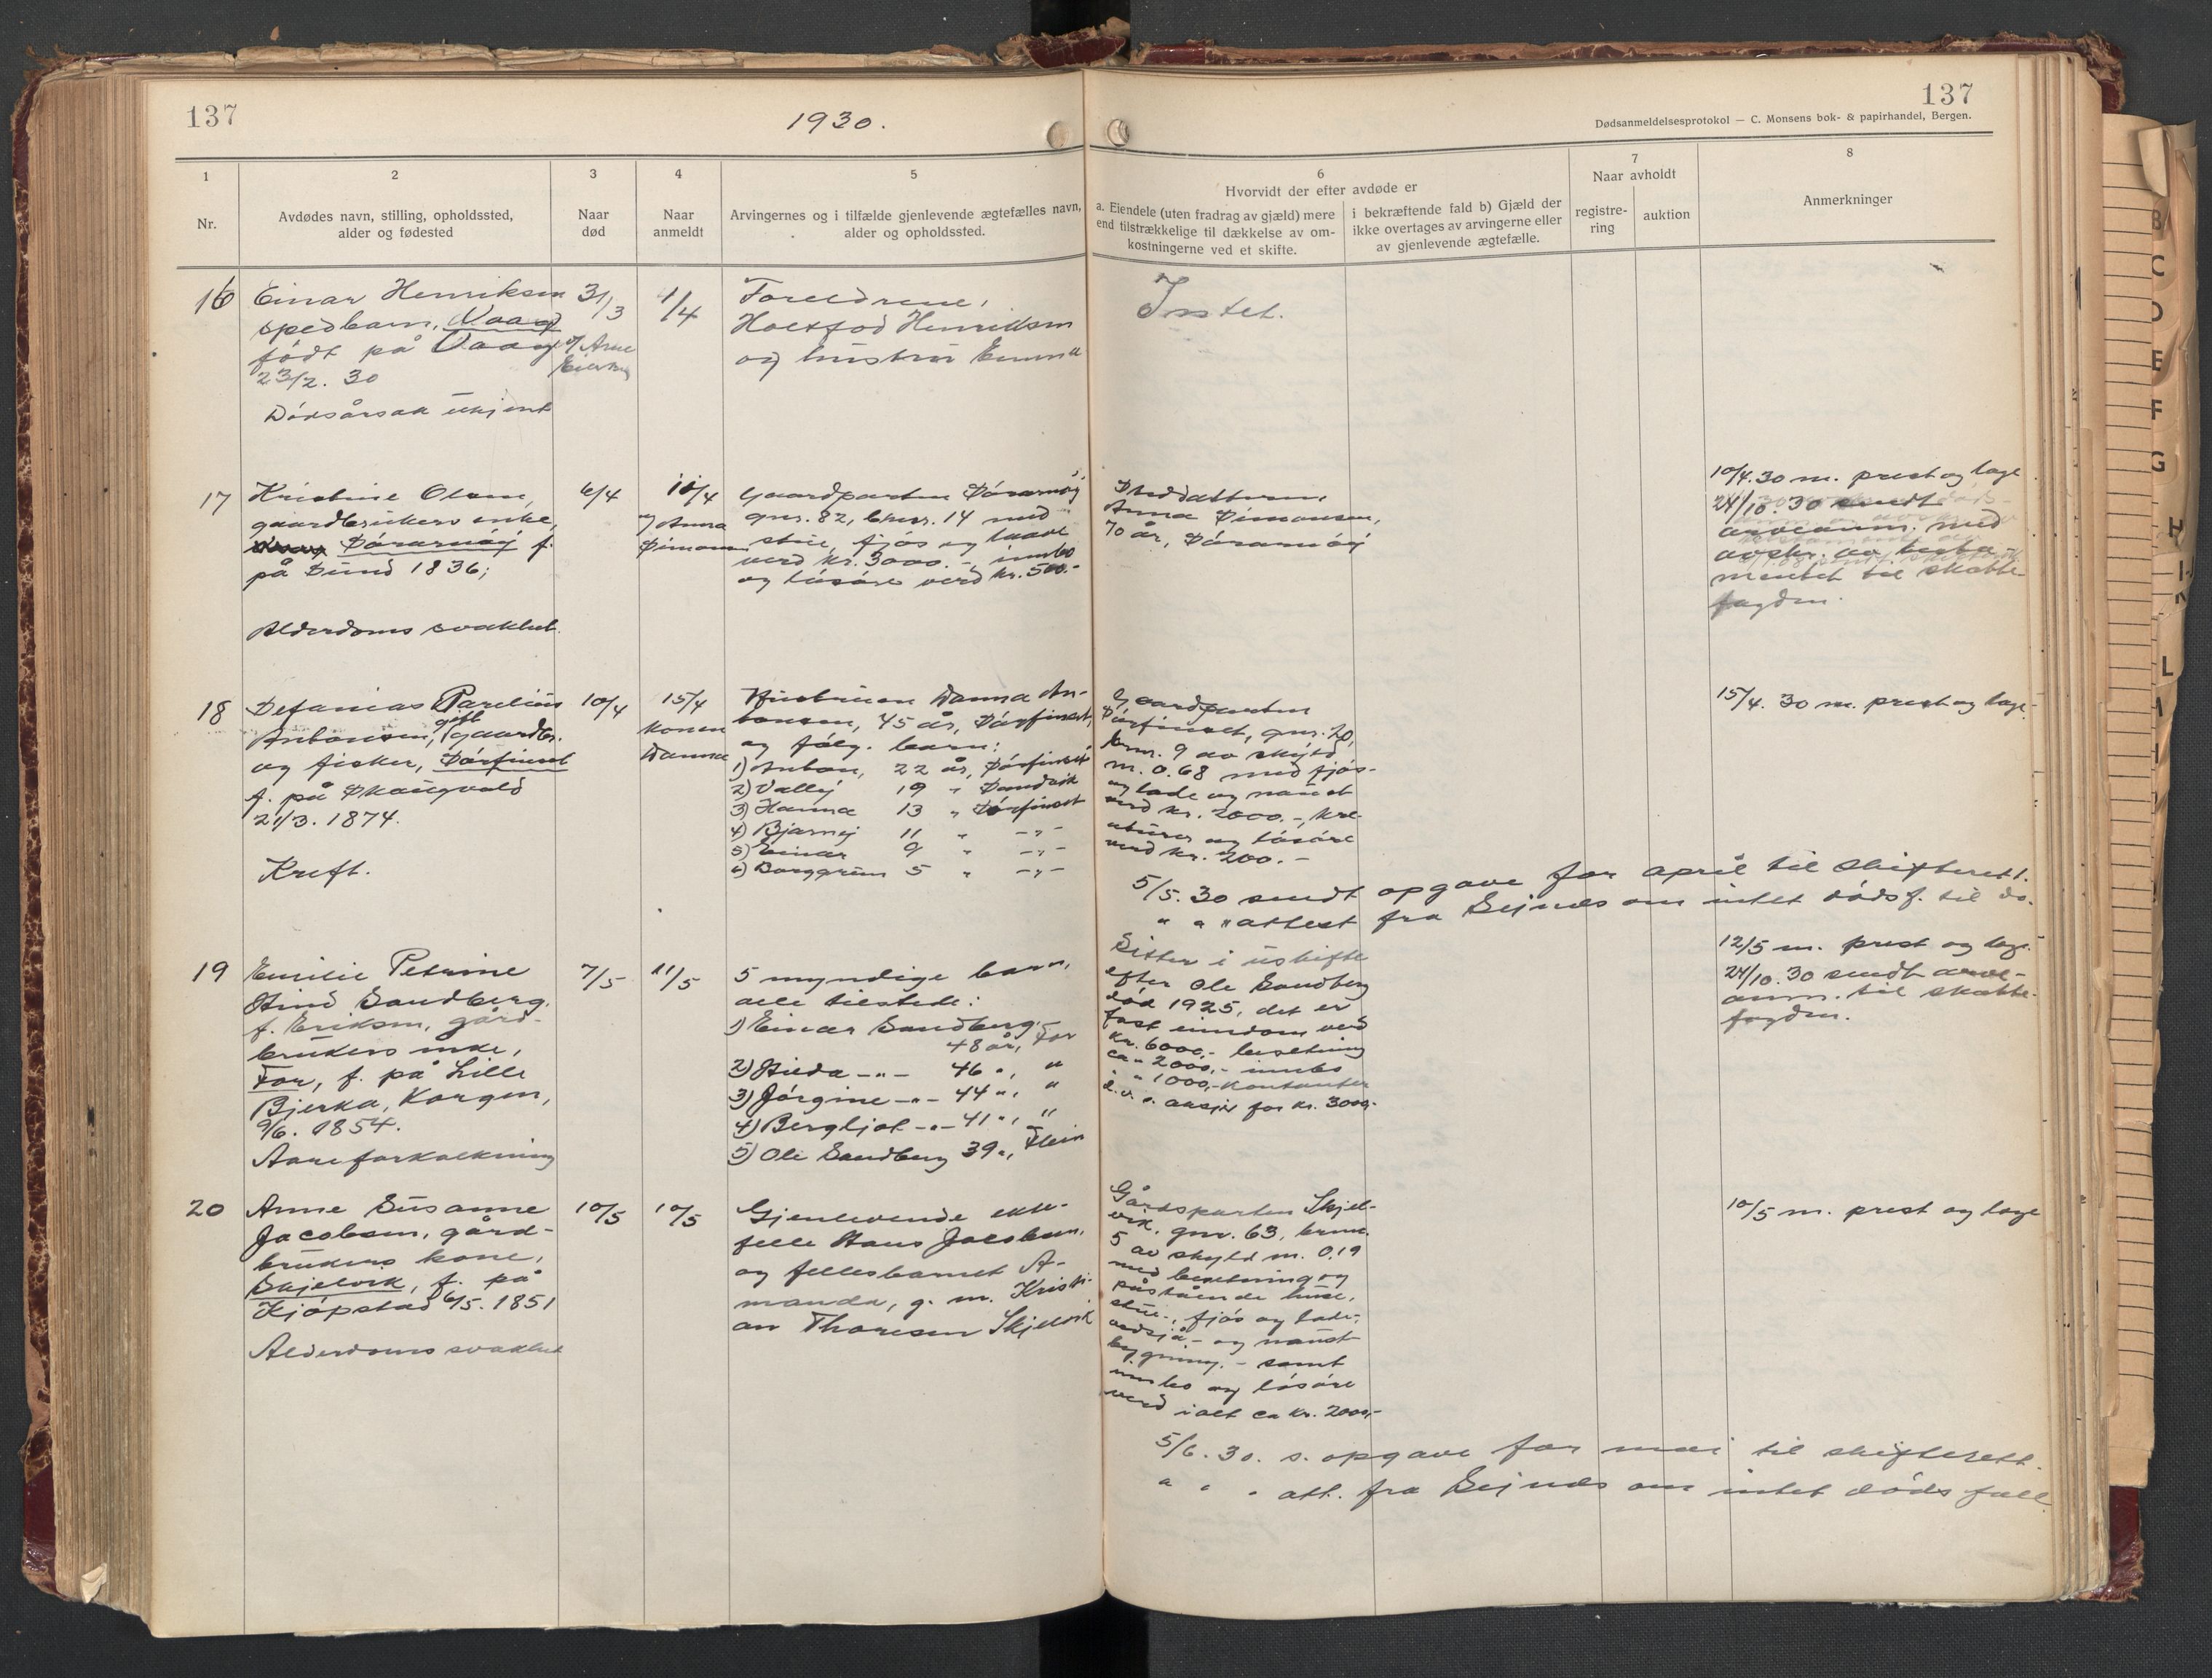 137
1930.
137
Dødsanmeldelsesprotokol — C. Monsens bok- & papirhandel, Bergen.
1
Nr.
2
Avdødes navn, stilling, opholdssted,
alder og fødested
3
Naar
død
4
Naar
anmeldt
5
Arvingernes og i tilfælde gjenlevende ægtefælles navn,
alder og opholdssted.
6
Hvorvidt der efter avdøde er
a. Eiendele (uten fradrag av gjæld) mere
end tilstrækkelige til dækkelse av om-
kostningerne ved et skifte.
i bekræftende fald b) Gjæld der
ikke overtages av arvingerne eller
av gjenlevende ægtefælle.
7
Naar avholdt
registre-
ring
auktion
8
Anmerkninger
16
Einar Henriksen
spedbarn, Vaag
født på Vaag
23/2. 30
Dødsårsak ukjent
31/3
v/ Arne
1/4
Foreldrene,
Henriksen
og hustru Emma
Intet.
17
Kristine Olsen,
gaardbrukers enke,
Sørarnøy f.
på Sund 1836;
Alderdoms svakhet.
6/4
10/4
v/ Anna
Simonsen
Gaardparten Sørarnøy
gnr. 82, bnr. 14 med
stue, fjøs og laave
verd kr. 3000.-, innbo
og løsøre verd kr. 500.-
Anna Simonsen,
70 år, Sørarnøy
10/4.30 m. prest og lege
24/10.30 sendt
arveanm. med
avskr. av testa-
mentet til skatte-
fogden.
18
Defanias Parelius
Antonsen, gift gaardbr.
og fisker, Sørfinset
f. på Skaugvold
21/3. 1874.
Kreft.
10/4
15/4
Konen
Danna
Hustruen Danna An-
tonsen, 45 år, Sørfinset,
og følg. barn:
1) Anton, 22 år, Sørfinset
2) Valley 19 " Sandvik
3) Hanna 13 " Sørfinset
4) Bjarney 11 " -"-
5) Einar 9 " -"-
6) Borggrim 5 " -"-
Gaardparten
Sørfinset, gnr. 20,
bnr. 9 av skyld
m. 0.68 med fjøs-
og lade og naust
verd kr. 2000.-, kre-
aturer og løsøre
verd kr. 200.-
15/4. 30 m. prest og lege.
5/5. 30 sendt opgave for april til skifterett.
" " " attest fra Seines om intet dødsf. til do.
19
Emilie Petrine
Stind Sandberg,
f. Eriksen, gård-
brukers enke,
For, f. på Lille
Bjerka, Korgen,
9/6. 1854.
Aareforkalkning
7/5
11/5
5 myndige barn,
alle tilstede:
1) Einar Sandberg,
48 år, For
2) Hilda -"- 46 ", "
3) Jørgine -"- 44 ", "
4) Bergljot -"- 41 ", "
5) Ole Sandberg 39 ",
Sitter i uskifte
efter Ole Sandberg
død 1925, det er
fast eiendom verd
kr. 6000,- besetning
ca " 2000,- innbo
" " 1000,- kontanter
aksjer for kr. 3000,-
12/5 m. prest og lege.
24/10.30 sendt arve-
anm. til skatte-
fogden.
20
Anne Susanne
Jacobsen, gård-
brukers kone,
Skjelvik, f. på
Kjøpstad 6/5. 1851
Alderdoms svakhet
10/5
10/5
Gjenlevende ekte-
felle Hans Jacobsen,
og fellesbarnet A-
manda, g. m. Kristi-
an Thoresen Skjelvik
Gårdsparten Skjel-
vik, gnr. 63, brnr.
5 av skyld m. 0.19
med besetning og
påstående huse,
stue-, fjøs og lade-,
vedsjå- og naust-
bygning, - samt
innbo og løsøre
verd i alt ca kr. 2000,-
10/5 m. prest og lege
5/6. 30. s. opgave for mai til skifterett.
" " " att. fra Seines om intet dødsfall.
B
C
D
E
F
G
H
K
L